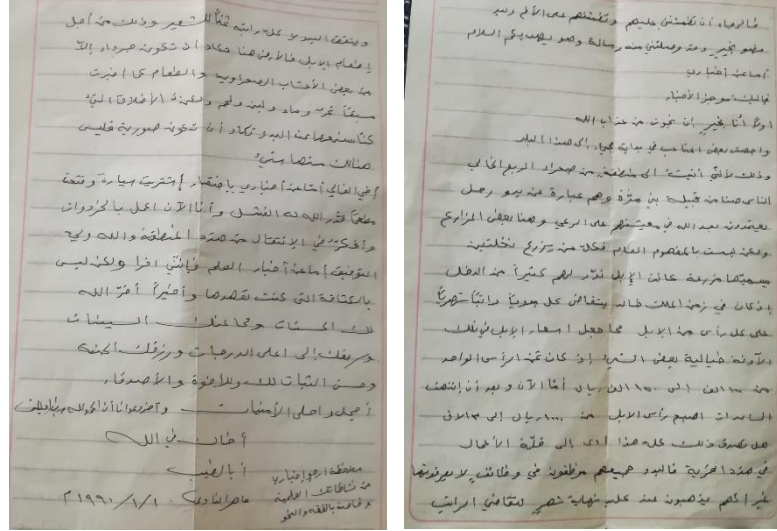 فالرجاء أن تطمئنني عليهم وتطمئنهم على الأخ وليد
فهو بخير وقد وصلتني منه رسالة وهو يهديكم السلام
أما عن أخباري
فإليك موجز الأخبار
أولاً أنا بخير إن نجوت من عذاب الله
واجهت بعض المتاعب في بداية مجيئي إلى هذا البلد
وذلك لأنني أتيت إلى منطقة من صحراء الربع الخالي
الناس هنا من قبيلة بني مرة وهم عبارة عن بدو رحل
يعتمدون بعد الله في معيشتهم على الرعي وهنا بعض المزارع
ولكن ليست بالمفهوم العام فكل من زرع نخلتين
يسميها مزرعة كانت الإبل تدر لهم كثيراً من الدخل
إذ كان في زمن الملك خالد يتقاضى كل بدوي راتباً شهرياً
على كل رأس من الإبل مما جعل أسعار الإبل في تلك
الآونة خيالية بعض الشيء إذ كان ثمن الرأس الواحد
من ١٠٠ الف إلى ١٥٠ الف ريال أما الآن وبعد أن انتهت
المساعدات أصبح رأس الإبل من ١٠٠٠ ريال إلى ٣ الاف
هل تصدق ذلك علماً هذا أدى إلى قلة الأعمال
في هذه القرية فالبدو جميعهم موظفون في وظائف لا يعرفونها
غير أنهم يذهبون عند نهاية شهر لتقاضي الراتب
وينفق البدوي على دابته ثمناً للشعير وذلك من أجل
إطعام الإبل فالأرض هنا تكاد أن تكون جرداء إلا
من بعض الأعشاب الصحراوية والطعام كما أخبرت
سبقاً تمر وماء ولبن ولحم ولكن الأخلاق التي
كنا نسمعها عن البدو تكاد أن تكون صورية فليس
هنالك منها شيء
أخي الغالي أما عن أخباري باختصار اشتريت سيارة وفتحت
مطعماً قدر الله له الفشل وأنا الآن أعمل بالخردوات
وأفكر في الانتقال من هذه المنطقة والله ولي
التوفيق أما عن أخبار العلم فإنني أقرأ ولكن ليس
بالكثافة التي كنت تعهدها وأخيراً أقر الله
لك الحسنات ومحا عنك السيئات
ورفعك إلى أعلى الدرجات ورزقك الجنة
وحسن الثبات لك وللأخوة والأصدقاء
أجمل وأحلى الأمنيات وآخر دعوانا أن الحمد لله رب العالمين
أخاك في الله
أبا لطيب
ماهر ١٩٩٠/١/١ م
ملاحظة أرجو إخباري
عن نشاطاتك العلمية
وخاصة بالفقه والنحو